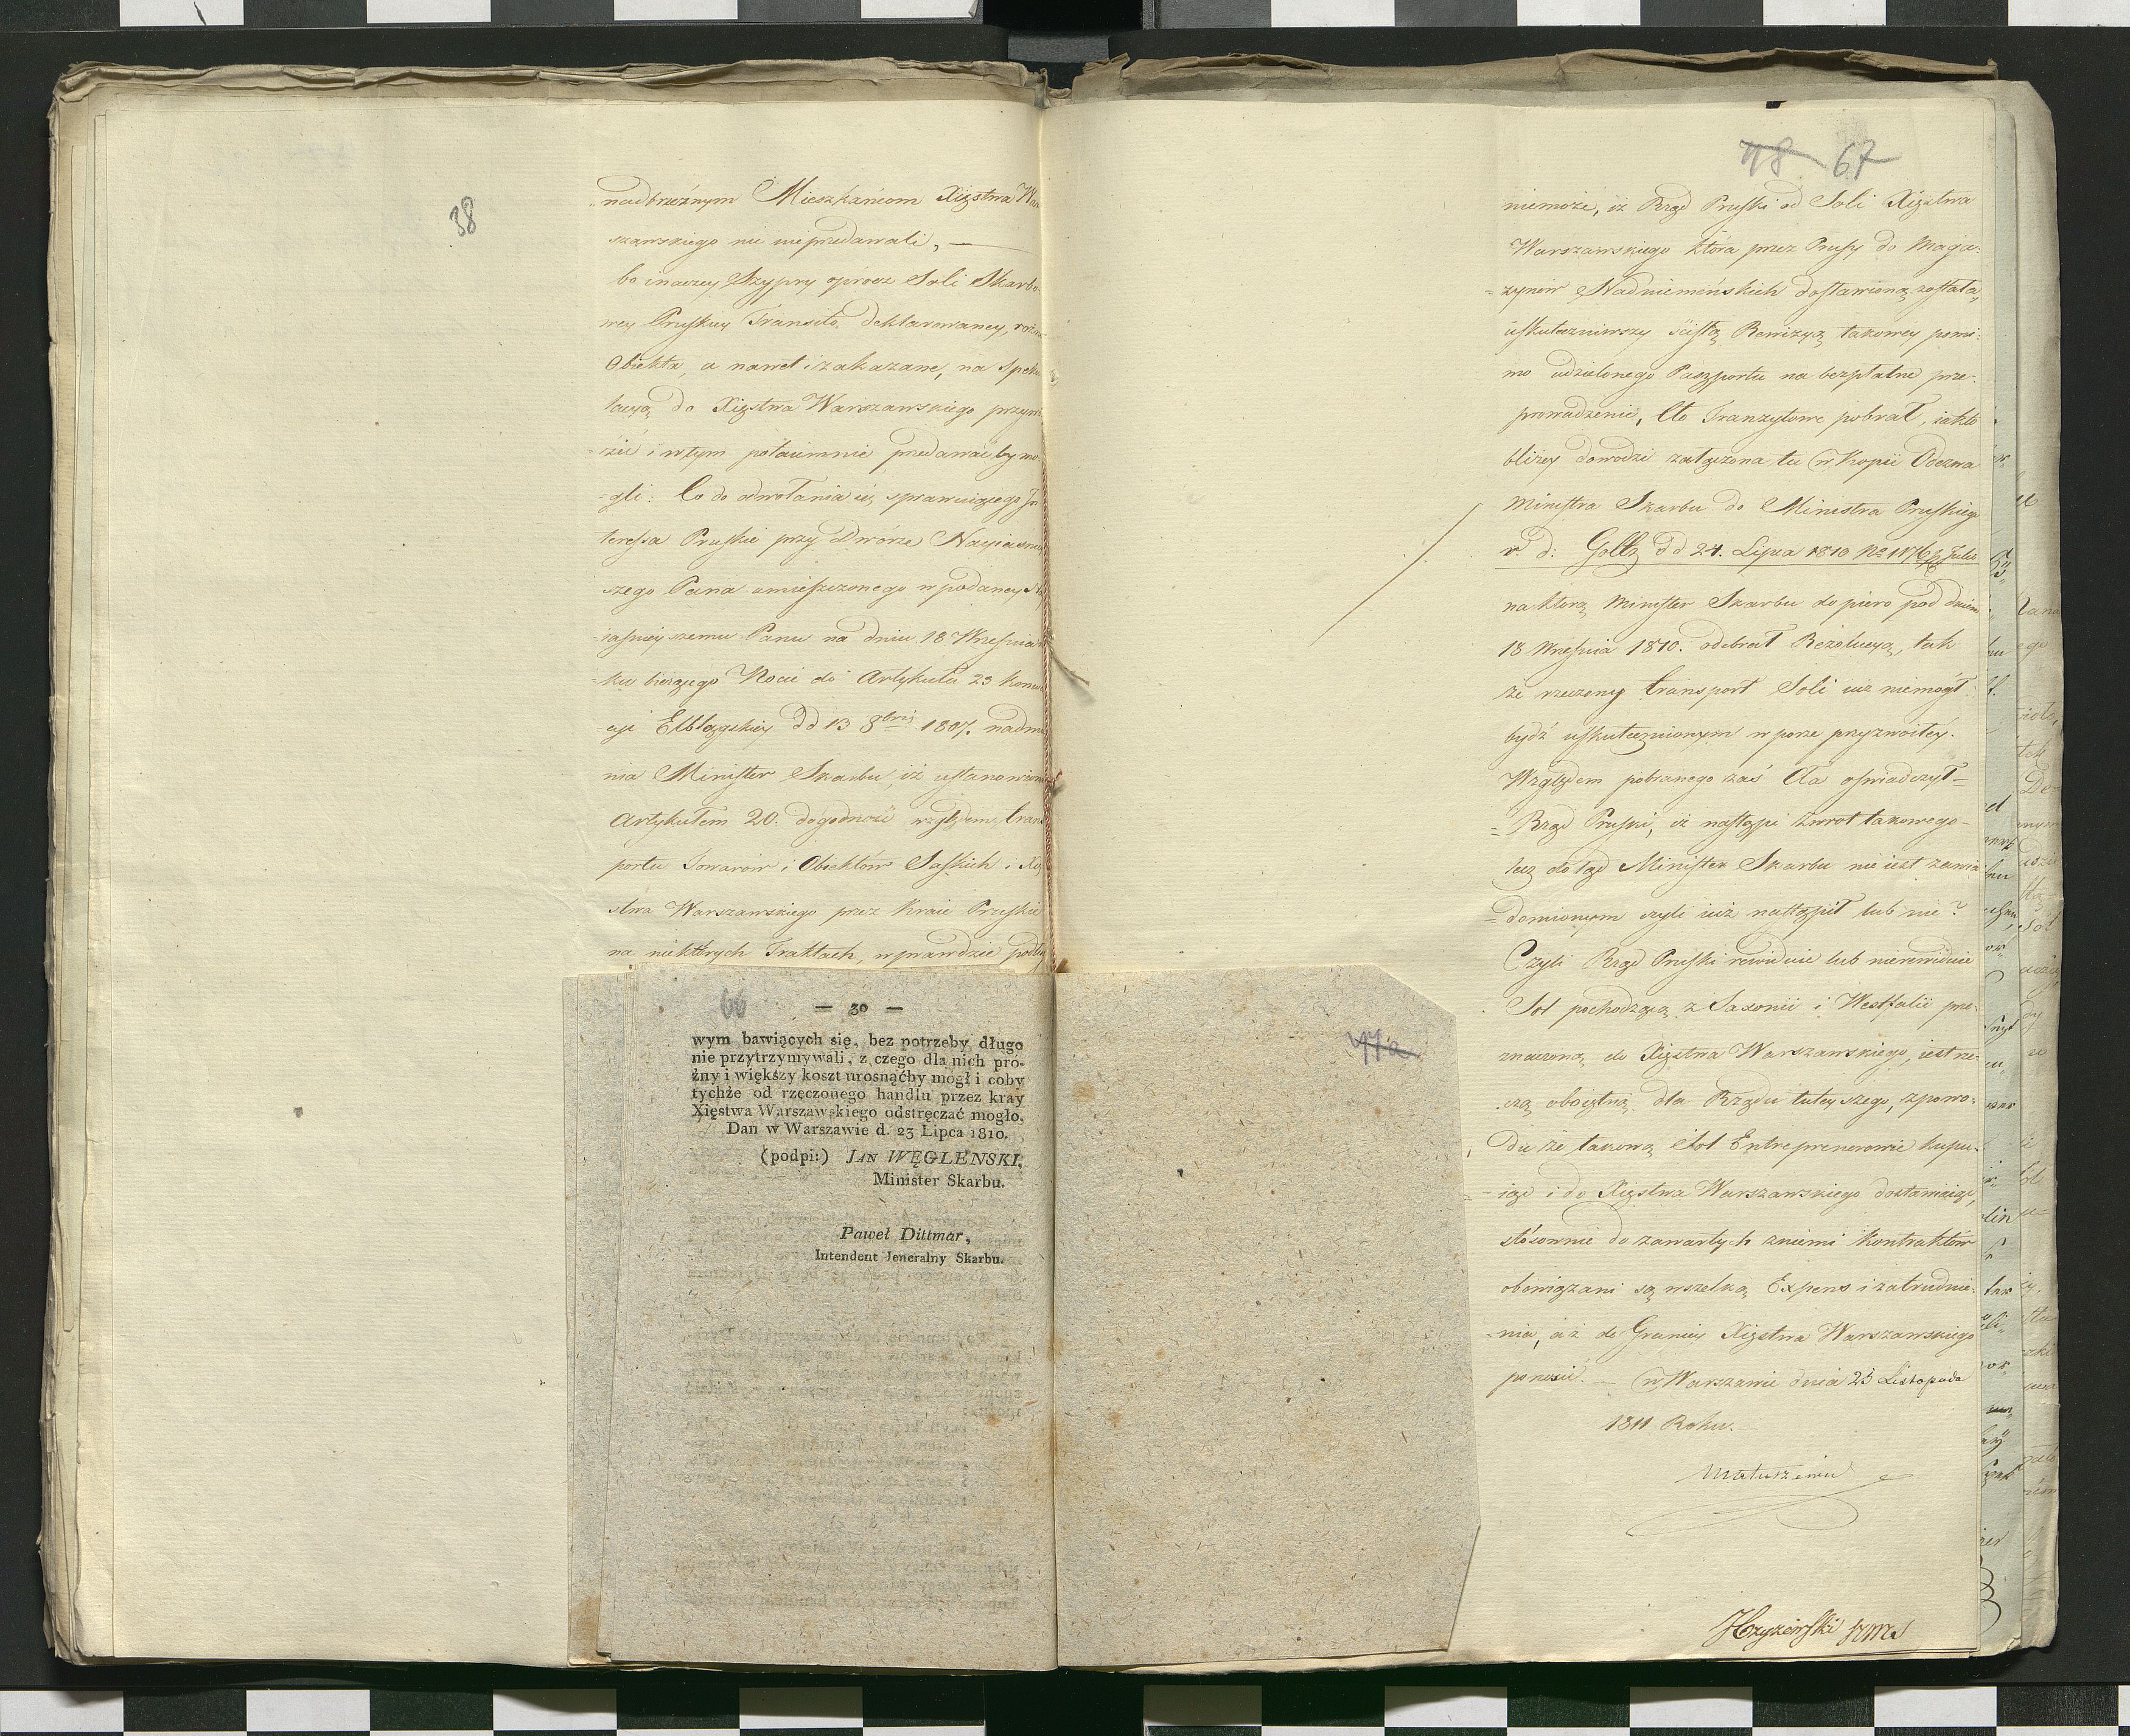 38
nadbrzeżnym Mieszkańcom Xięstwa War
szawskiego nie wyprzedawali, —
bo inaczey Szypry oprócz Soli Skarbo-
wey Pruskiey Transito deklarowaney, różne
Obiekta, a nawet i zakazane, na speku
lacyą do Xięstwa Warszawskiego przywo
zić i w tym potaiemnie przedawać by mo
gli: Co do odwołania się sprawuiącego In
teressa Pruskie przy Dworze Nayiaśniey
szego Pana umieszczonego w podaney Nay
iaśnieyszemu Panu na dniu 18 Września
ku bieżącego Nocie do Artykułu 23 Konwen
cyi Elblągskiey dd 13 8bris 1807. nadmie
nia Minister Skarbu, iż ustanowiona
Artykułem 20. dogodność względem trans
portu Towarów i Obiektów Saskich i Xię
stwa Warszawskiego przez Kraie Pruskie
na niektórych Traktach, wprawdzie podług
66
— 30 —
wym bawiących się, bez potrzeby długo
nie przytrzymywali, z czego dla nich pró-
żny i większy koszt urosnąćby mógł i coby
tychże od rzeczonego handlu przez kray
Xięstwa Warszawskiego odstręczać mogło.
Dan w Warszawie d. 23 Lipca 1810.
(podpi:) JAN WĘGLENSKI,
Minister Skarbu.
Paweł Dittmar,
Intendent Jeneralny Skarbu.
47a
48 67
niemoże, iż Rząd Pruski od Soli Xięstwa
Warszawskiego która przez Prusy do Maga-
zynów Nadniemeńskich dostawioną została,
uskuteczniwszy ścisłą Rewizyą takowey pomi-
mo udzielonego Paszportu na bezpłatne prze-
prowadzenie, Cło Tranzytowe pobrał, iak to
bliżey dowodzi załączona tu w Kopii Odezwa
Ministra Skarbu do Ministra Pruskiego
v d: Goltz dd 24. Lipca 1810 No 1176
na którą Minister Skarbu dopiero pod dniem
18 Września 1810. odebrał Rezolucyą, tak
że rzeczony transport Soli iuż niemógł
bydź uskutecznionym w porze przyzwoitey.
Względem pobranego zaś Cła oświadczył
Rząd Pruski, iż nastąpi zwrot takowego
lecz dotąd Minister Skarbu nie iest zawia
domionym czyli iuż nastąpił lub nie?
Czyli Rząd Pruski rewiduie lub nierewiduie
Sol pochodzącą z Saxonii i Westfalii prze-
znaczoną do Xięstwa Warszawskiego, iest rze-
czą oboiętną dla Rządu tuteyszego, z powo-
du że takową Sol Entreprenerowie kupu-
iąc i do Xięstwa Warszawskiego dostawiaiąc,
stósownie do zawartych z niemi Kontraktów
obowiązani są wszelką Expens i zatrudnie-
nia, aż do Granicy Xięstwa Warszawskiego
ponosić. — w Warszawie dnia 23 Listopada
1811 Roku. —
Matuszewic